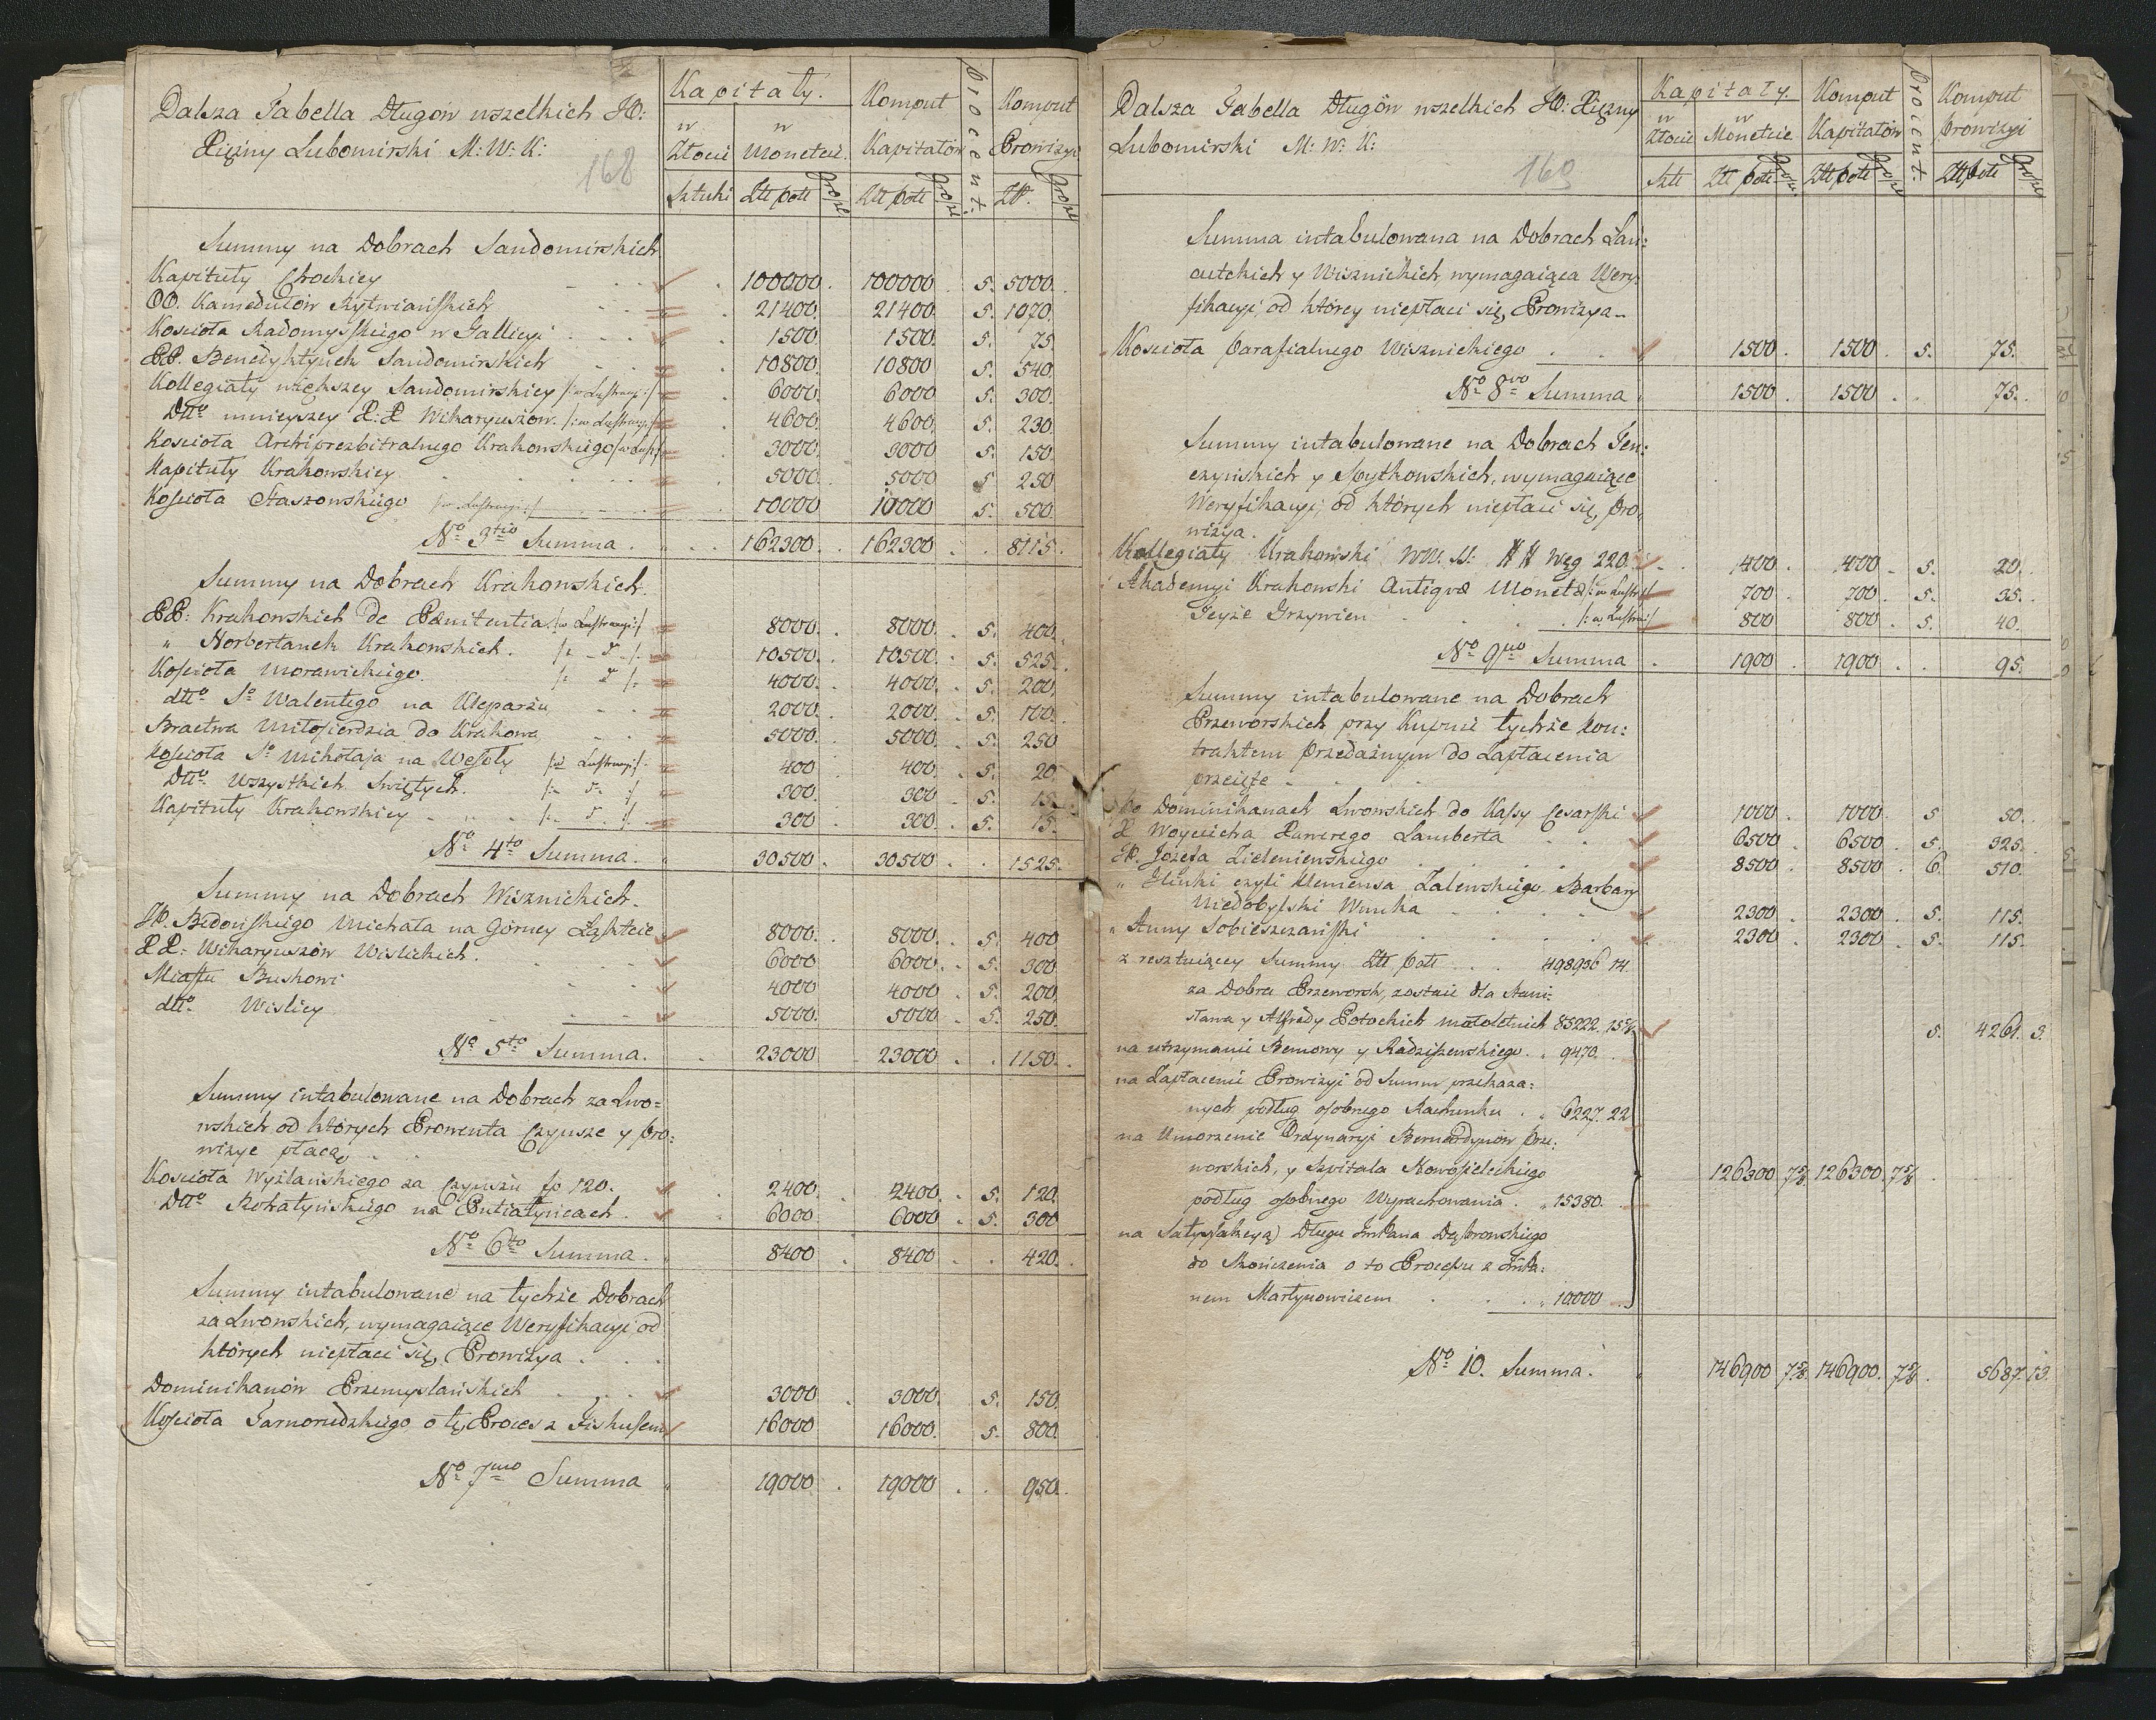 Dalsza Tabella Długów wszelkich JO:
Xiężny Lubomirski M: W: K:
168
Kapitały.
w Złocie
w Monecie.
Komput Kapitałów
Procent:
Komput Prowizyi
Sztuki
Złt: pols
Groszy
Złt pols
Groszy
Złł.
Groszy
Summy na Dobrach Sandomirskich
Kapituły 100000. 100000. 5. 5000.
OO. Kamedułów Rytwiańskich 21400. 21400. 5. 1070.
Kościoła Radomyskiego w Gallicyi 1500. 1500. 5. 75.
PP. Benedyktynek Sandomirskich 10800. 10800 5. 540.
Kollegiaty większey Sandomirskiey /:w Lustracyi:/ 6000. 6000 5. 300.
Dtto mnieyszey X: X Wikaryuszów. /:w Lustracyi:/ 4600. 4600. 5. 230.
Kościoła Archiprezbitralnego Krakowskiego 3000. 3000 5. 150.
Kapituły Krakowskiey 5000. 5000 5 250
Kościoła Staszowskiego /:w Lustracyi:/ 10000 10000 5. 500.
No 3tio Summa. 162300. 162300. 8115.
Summy na Dobrach Krakowskich.
PP: Krakowskich de Pænitentia. /:w Lustracyi:/ 8000. 8000. 5. 400.
" Norbertanek Krakowskich. 10500. 10500. 5. 525.
Kościoła Morawickiego. 4000. 4000. 5. 200.
dtto So Walentego na Kleparzu 2000. 2000. 5. 100.
Bractwa Miłosierdzia do Krakowa 5000. 5000. 5. 250
Kościoła So Mikołaja na Wesoły /:w Lustracyi:/ 400 400. 5. 20.
Dtto Wszystkich Swiętych. 300. 300 5. 15.
Kapituły Krakowskiey 300 300. 5. 15.
No 4to Summa. 30500. 30500. 1525.
Summy na Dobrach Wisznickich.
JP. Michała na Górney 8000. 8000. 5. 400.
XX: Wikaryuszów Wislickich. 6000 6000. 5. 300.
Miastu Buskowi 4000 4000. 5. 200.
dtto Wislicy 5000. 5000. 5. 250.
No 5to Summa. 23000 23000. 1150.
Summy intabulowane na Dobrach za Lwo=
wskich od których Prowenta Czynsze y Pro=
wizye płacą
Kościoła Wyżlańskiego za Czynsze fp 120. 2400. 2400. 5. 120.
Dtto Rohatyńskiego na Putiatyńcach. 6000 6000 5. 300
No 6to Summa. 8400 8400. 420.
Summy intabulowane na tychże Dobrach
za Lwowskich, wymagaiące Weryfikacyi, od
których niepłaci się, Prowizya
Dominikanów Przemyslańskich 3000. 3000. 5. 150.
Kościoła Tarnorudzkiego o tę Proces z Fiskusem 16000 16000. 5. 800.
No 7mo Summa 19000. 19000. 950.
Dalsza Tabella Długów wszelkich JO: Xiężny
Lubomirski M: W: K:
169
Kapitały.
w Złocie
w Monecie
Komput Kapitałów
Procent:
Komput Prowizyi
Sztt
Złt pols
Groszy
Złt pols
Groszy
Złt pols
Groszy
Summa intabulowana na Dobrach Łań:
cutckich y Wisznickich, wymagaiąca Wery:
fikacyi, od którey niepłaci się, Prowizya
Kościoła Parafialnego Wisznickiego 1500. 1500. 5. 75.
No 8vo Summa 1500. 1500. 75.
Summy intabulowane na Dobrach Ten:
czyńskich y Spytkowskich, wymagaiące
Weryfikacyi, od których niepłaci się, Pro,
wizya.
Kollegiaty Krakowski WW. SS: Węg 220. 400. 400. 5. 20.
Akademyi Krakowski Antiqvæ Monetæ /:w Lustra:/ 700 700. 5. 35.
Teyże Grzywien /:w Lustra:/ 800 800. 5. 40.
No 9no Summa 1900. 1900. 95.
Summy intabulowane na Dobrach
Przeworskich przy Kupnie tychże kon:
traktem Przedażnym do Zapłacenia
przeięte
Po Dominikanach Lwowskich do Kassy Cesarski 1000. 1000. 5 50.
X Woyciecha Xawerego Lamberta 6500. 6500. 5. 325.
JP. Józefa Zieleniewskiego 8500. 8500 6. 510.
" Hinki czyli Klemensa Zalewskiego Barbary
Niedobylski Wnuka 2300. 2300. 5. 115.
" Anny Sobieszczański 2300. 2300. 5. 115.
z resztuiącey Summy Złt Pols 498936 14.
za Dobra Przeworsk, zostaie dla Stani:
sława y Alfrédy Potockich małoletnich 85222. 15 5. 4261. 3.
na utrzymanie Bemowy y Radziszewskiego. " 9470.
na Zapłacenie Prowizyi od Summ przekaza:
nych podług osobnego Rachunku. " 6227. 22
na Umorzenie Ordynaryi Bernardynów Prze:
worskich, y Szpitala Nowosieleckiego 126300 126300.
podług osobnego Wyrachowania. " 15380.
na Satysfakcyą Długu ImPana Dąbrowskiego
do Skończenia o to Processu z ImPa:
nem Martynowiczem " 10000
No 10. Summa. 146900 146900. 5687. 13.